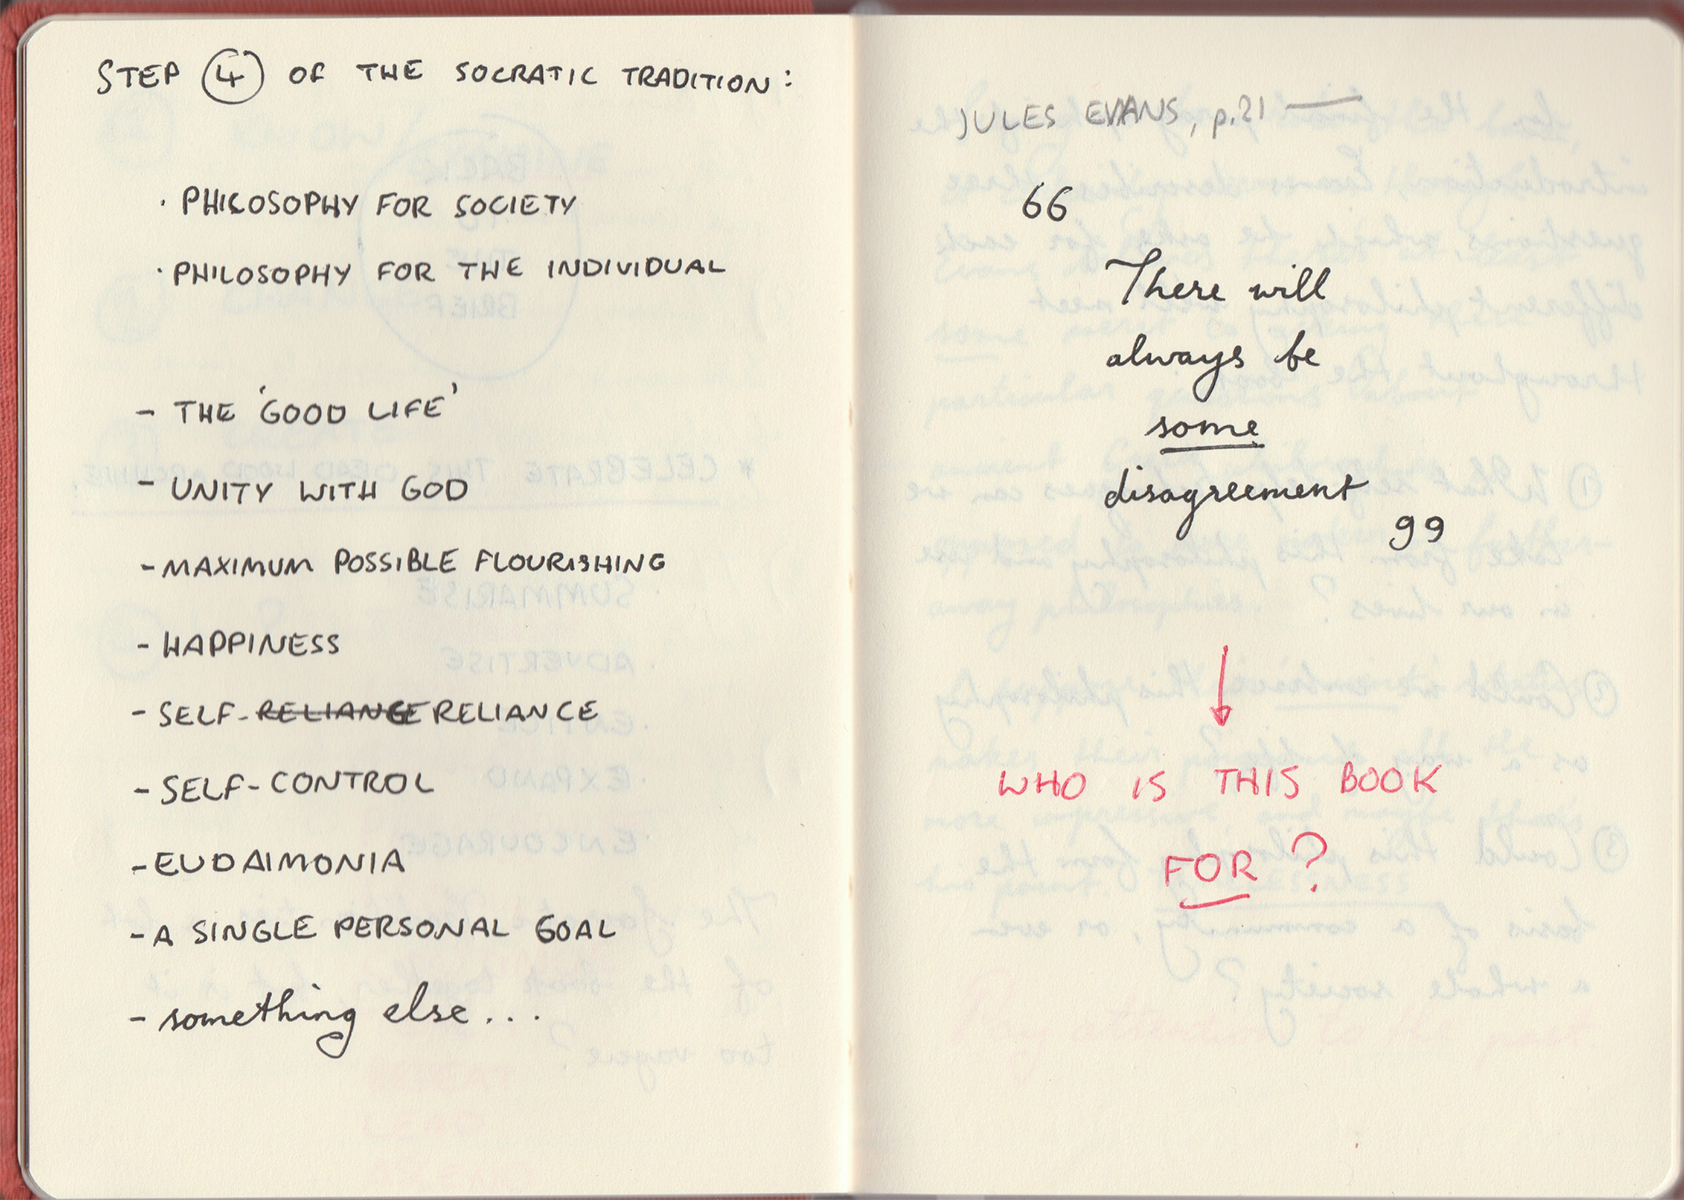 STEP 4 OF THE SOCRATIC TRADITION:
· PHILOSOPHY FOR SOCIETY
· PHILOSOPHY FOR THE INDIVIDUAL
- THE 'GOOD LIFE'
- UNITY WITH GOD
- MAXIMUM POSSIBLE FLOURISHING
- HAPPINESS
- SELF-RELIANCE RELIANCE
- SELF-CONTROL
- EUDAIMONIA
- A SINGLE PERSONAL GOAL
- something else...
JULES EVANS, p.21 —
“
There will
always be
some
disagreement
”
↓
WHO IS THIS BOOK
FOR?